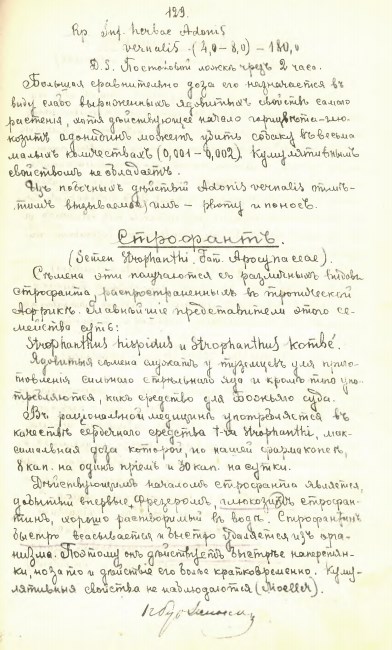 123.
Rp Inf. herbae Adonis
vernalis - (4,0 - 8,0) - 180,0
D. S. По столовой ложкѣ чрезъ 2 часа.
Большая сравнительно доза его назначается въ
виду слабо выраженныхъ ядовитыхъ свойствъ самаго
растенія, хотя дѣйствующее начало горицвѣта - глю-
козитъ адонидинъ можетъ убить собаку въ весьма
малыхъ количествахъ (0,001 - 0,002). Кумулятивнымъ
свойствомъ не обладаетъ.
Изъ побочныхъ дѣйствій Adonis vernalis отмѣ-
тимъ вызываемые имъ - рвоту и поносъ.
Строфантъ.
(Semen Strophanthi. Fam. Apocynaceae).
Сѣмена эти получаются съ различныхъ видовъ
строфанта, распространенныхъ въ тропической
Африкѣ. Главнѣйшіе представители этого се-
мейства суть:
Strophanthus hispidus и Strophanthus kombé.
Ядовитыя сѣмена служатъ у туземцевъ для приго-
товленія сильнаго стрѣльнаго яда и кромѣ того упо-
требляются, какъ средство для Божьяго суда.
Въ раціональной медицинѣ употребляется въ
качествѣ сердечнаго средства t-ra Strophanthi, мак-
симальная доза которой, по нашей фармакопеѣ,
8 кап. на одинъ пріемъ и 30 кап. на сутки.
Дѣйствующимъ началомъ строфанта является,
добытый впервые Фрезеромъ, глюкозитъ строфан-
тинъ, хорошо растворимый въ водѣ. Строфантинъ
быстро всасывается и быстро удаляется изъ орга-
низма. Поэтому онъ дѣйствуетъ быстрѣе наперстян-
ки, но за то и дѣйствіе его болѣе кратковременно. Куму-
лятивныя свойства не наблюдаются (Moeller).